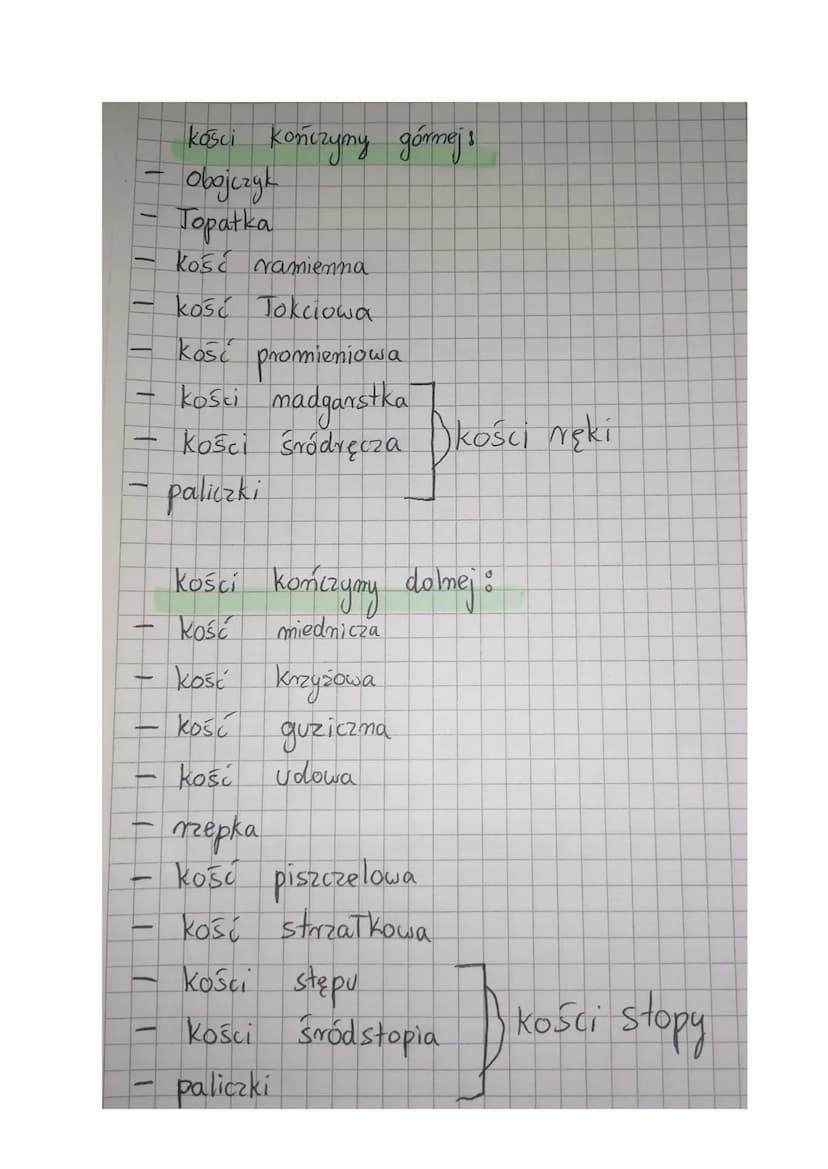 kości kończyny górnej:
- obojczyk
- łopatka
- kość ramienna
- kość łokciowa
- kość promieniowa
- kości nadgarstka
- kości śródręcza
kości ręki
- paliczki
kości kończyny dolnej:
- kość miednicza
- kość krzyżowa
- kość guziczna
- kość udowa
- rzepka
- kość piszczelowa
- kość strzałkowa
- kości stępu
- kości śródstopia
kości stopy
- paliczki